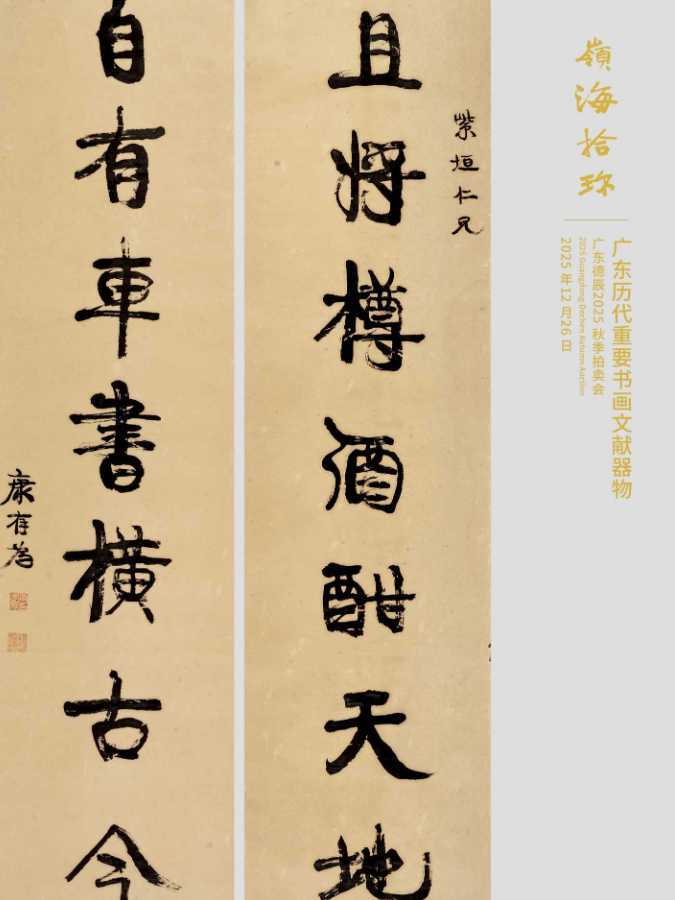 嶺海拾珎
广东历代重要书画文献器物
广东德辰2025 秋季拍卖会
2025 Guangdong Dechen Autumn Auction
2025 年12 月26 日
紫垣仁兄
且将樽酒酣天地
自有車書橫古今
康有為